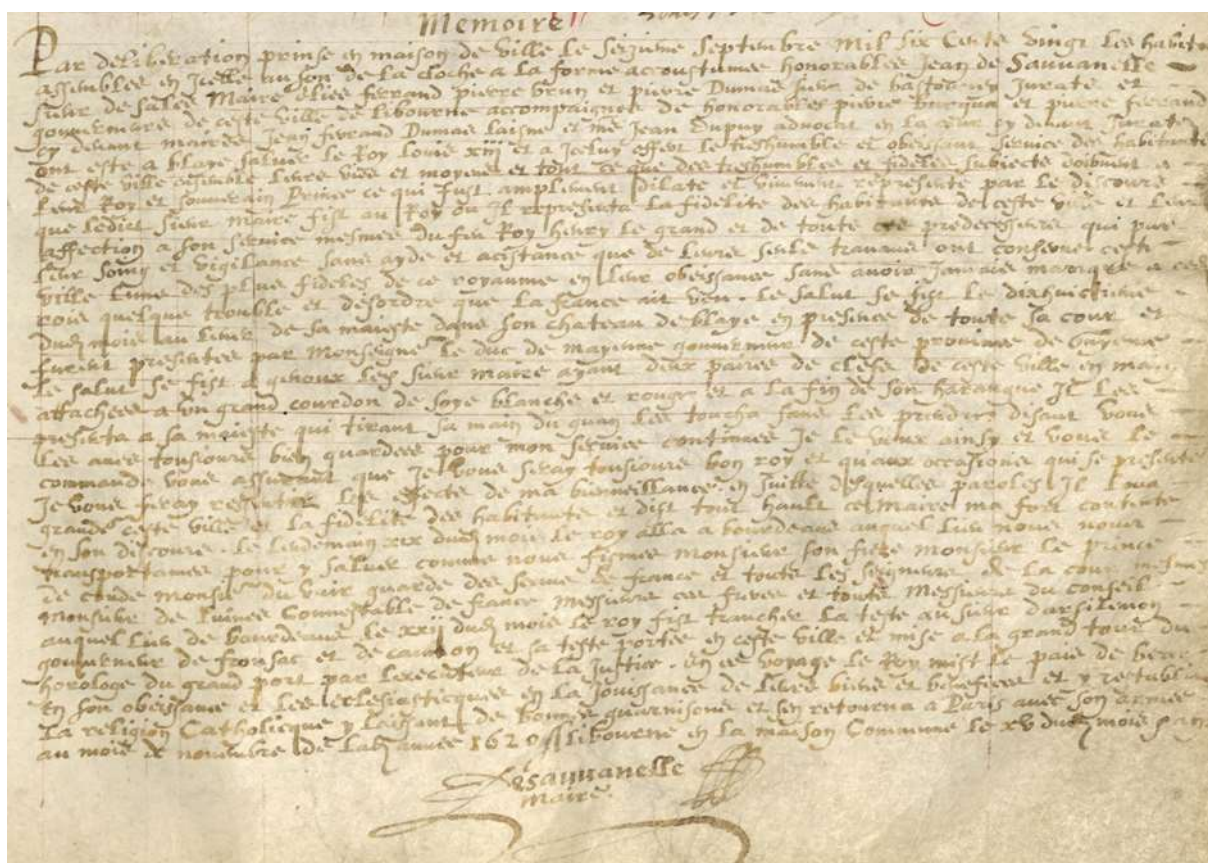 Memoire
Par deliberation prinse en maison de ville le seizieme septembre mil six cents vingt les habita
assembles en Icelle au son de la cloche a la forme accoustumee honorables Jean de Sauvanelle
sieur de sales Maire Elies ferrand pierre brun et pierre Dumas sieur de bastonney Jurats et
gouverneurs de ceste ville de libourne accompaignes de honorables pierre et pierre ferrand
cy devant maires Jean ferrand Dumas laisne et me Jean Dupuy advocat en la cour cy devant Jurats
ont este a blaye saluer le Roy louis xiij et a Iceluy offert le treshumble et obeissant service des habitants
de ceste ville ensemble leurs vies et moyens et tout ce que des treshumbles et fideles subiects doibvent a
leur Roy et souverain Prince ce qui fust amplement dilate et vivement represente par le discours
que ledict sieur maire fist au Roy ou Il representa la fidelite des habitants de ceste ville et leur
affection a son service mesmes du feu Roy henry le grand et de touts predecesseurs qui par
leur soing et vigilance sans ayde et acistance que de leurs seuls travaux ont conserve ceste
ville lune des plus fideles de ce royaume en leur obeissance sans avoir Jamais manque a
rois quelque trouble et desordre que la france ait veu. le salut se fist le dixhuictieme
dud mois au lever de sa maieste dans son chateau de blaye en presence de toute sa cour et
furent presentes par Monseigne le duc de mayenne gouverneur de ceste province de Guyenne
le salut se fist a genoux led sieur maire ayant deux paires de clefs de ceste ville en main
attachees a un grand courdon de soye blanche et rouge et a la fin de son harangue Il les
presenta a sa maieste qui tirant sa main du guan les toucha sans les prendre disant vous
les aves tousiours bien guardees pour mon service continues Je le veux ainsy et vous le
commande vous assurant que Je vous seray tousiours bon roy et quaux occasions qui se presente
Je vous feray ressentir les effects de ma bienveillance. en suitte desquelles paroles Il loua
grande ceste ville et la fidelite des habitants et dist tout hault ce maire ma fort contente
en son discours. le lendemain xix dud mois le roy alla a bourdeaus auquel lieu nous nous
transportames pour y saluer comme nous fismes monsieur son frere monsieur le prince
de conde monsr du vair guarde des seaux de france et touts les seigneurs de la cour mesmes
monsieur de luines Connestable de france messieurs ces freres et touts messieurs du conseil
auquel lieu de bourdeaus le xxij dud mois le roy fist trancher la teste au sieur darsilemon
gouverneur de fronsac et de caumon et sa teste portee en ceste ville et mise a la grand tour du
horologe du grand port par lexecuteur de la Justice. En ce voyage le Roy mist le pais de bear
en son obeissance et les ecclesiasticques en la Jouissance de leurs biens et benefices et y restabli
la religion Catholicque y laissant de bonnes guarnisons et sen retourna a Paris avec son armee
au mois de novembre de lad annee 1620 libourne en la maison Commune le xv dud mois
De Sauvanelle
maire.